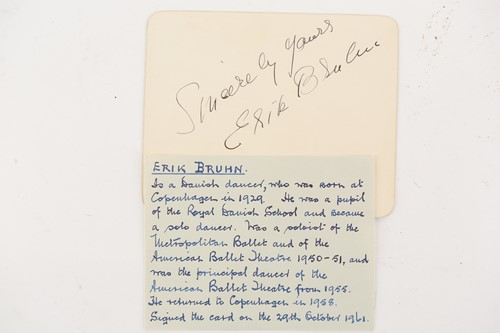 Sincerely yours
Erik Bruhn
ERIK BRUHN.
Is a Danish dancer, who was born at
Copenhagen in 1929. He was a pupil
of the Royal Danish School and became
a solo dancer. Was a soloist of the
Metropolitan Ballet and of the
American Ballet Theatre 1950-51, and
was the principal dancer of the
American Ballet Theatre from 1955.
He returned to Copenhagen in 1958.
Signed the card on the 29th October 1961.